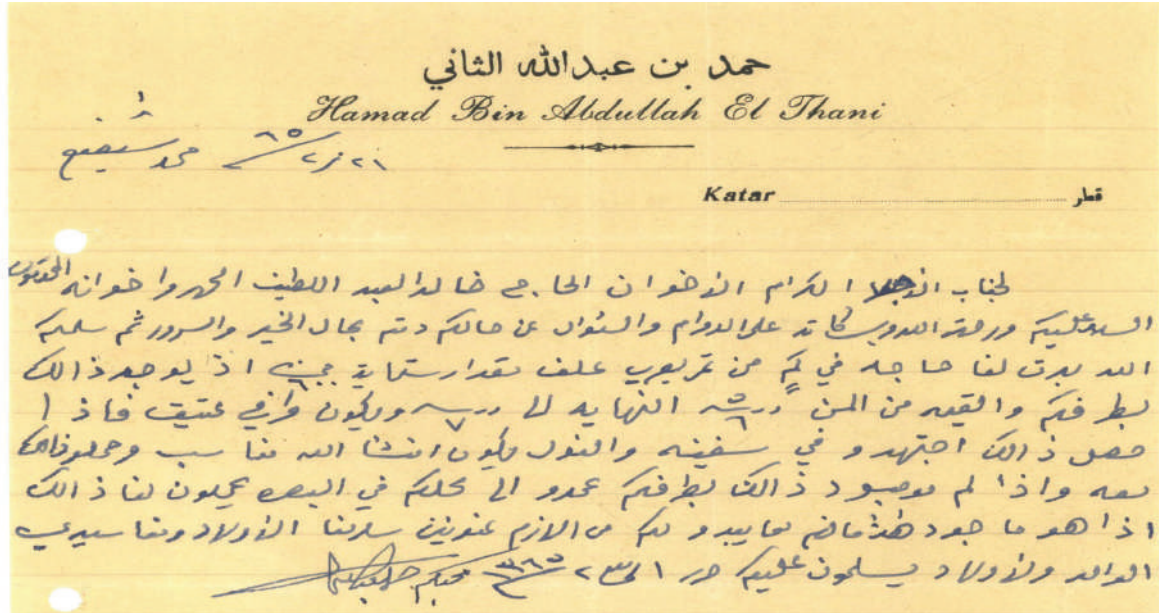 حمد بن عبدالله الثاني
Hamad Bin Abdullah El Thani
محمد شفيع
Katar قطر
لجناب الكرام الاخوان الحاج خالد العبد اللطيف الحمد واخوانه المحترمين
السلام عليكم ورحمة الله وبركاته على الدوام والسئوال عن حالكم دمتم بحال الخير والسرور ثم سلمكم
الله بدت لنا حاجه في كم من تمر علف مقدار ستماية اذ يوجد ذالك
بطرفكم والقيمه من المن النهايه لا ويكون عتيق فاذا
حصل ذالك اجتهدو في سفينه والنول يكون انشا الله مناسب وحملو ذالك
معه واذا لم يوجود ذالك بطرفكم عمدو الى محلكم في البصره يحملون لنا ذالك
اذا هو ماجود هذا مالزم بدو لكم من الازم سلامنا الاولاد ومنا سيدي
الوالد والاولاد يسلمون عليكم محبكم